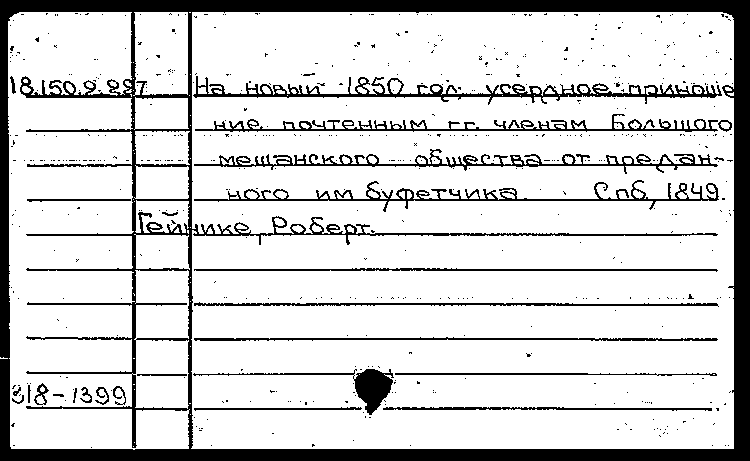 18.150.9.227 На новый 1850 год усердное приноше
ние почтенным гг. членам Большого
мещанского общества от предан-
ного им буфетчика. Спб, 1849.
Гейнике, Роберт.
318-1399